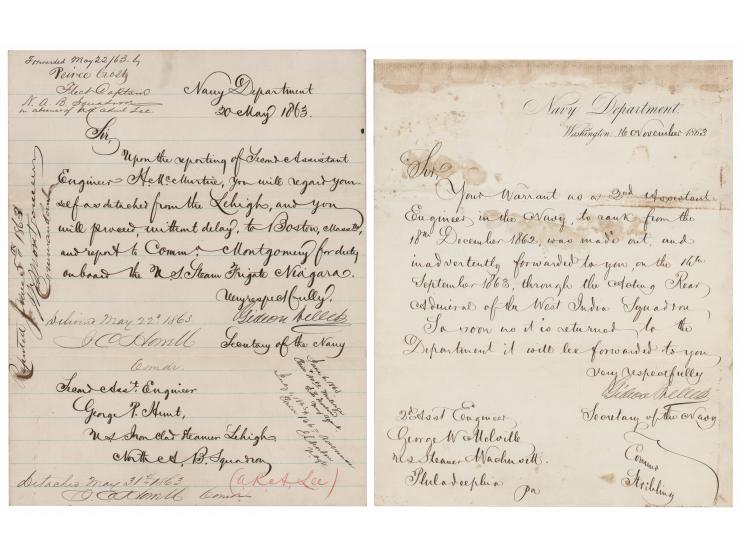 Forwarded May 22/63. by
Peirce Crosby
Fleet Captain
N. A. B. Squadron
in absence of
Lee
Navy Department
20 May 1863.
Sir,
Upon the reporting of Second Assistant
Engineer A McMurtrie, you will regard your-
self as detached from the Lehigh, and you
will proceed, without delay, to Boston, Masstts,
and report to Commo. Montgomery for duty
on board the U S Steam Frigate Niagara.
Very respectfully,
Gideon Welles
Secretary of the Navy
Reported June 5th 1863
Commandant
Delivered May 22d 1863
J C Howell
Comdr.
Second Asst. Engineer
George P. Hunt,
U S Iron Clad Steamer Lehigh
North A. B. Squadron
(A. R. A. Lee)
Detached May 31st 1863
J C Howell Comdr
Navy Department.
Washington 16 November 1863
Sir,
Your Warrant as a 2nd Assistant
Engineer in the Navy, to rank from the
18th December 1862, was made out, and
inadvertently forwarded to you, on the 14th
September 1863, through the Acting Rear
Admiral of the West India Squadron.
So soon as it is returned to the
Department it will be forwarded to you
very respectfully
Gideon Welles
Secretary of the Navy.
2d Asst Engineer
George W Melville
U S Steamer Wachusett
Philadelphia
Pa
Commo
Stribling